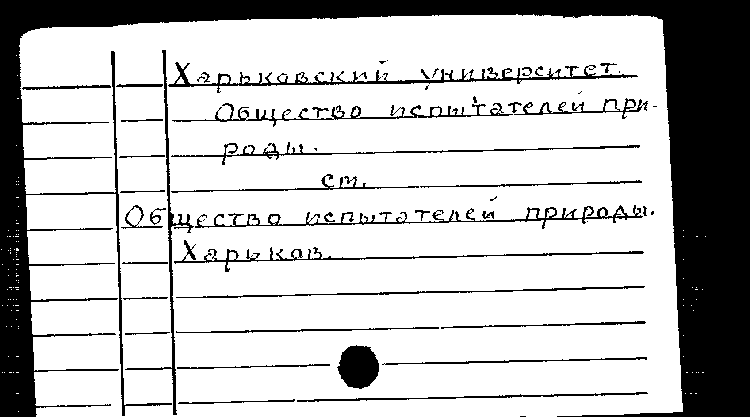 Харьковский университет.
Общество испытателей при-
роды.
ст.
Общество испытателей природы.
Харьков.